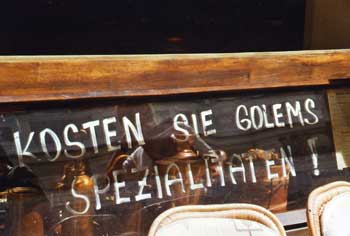 KOSTEN SIE GOLEMS
SPEZIALITÄTEN !